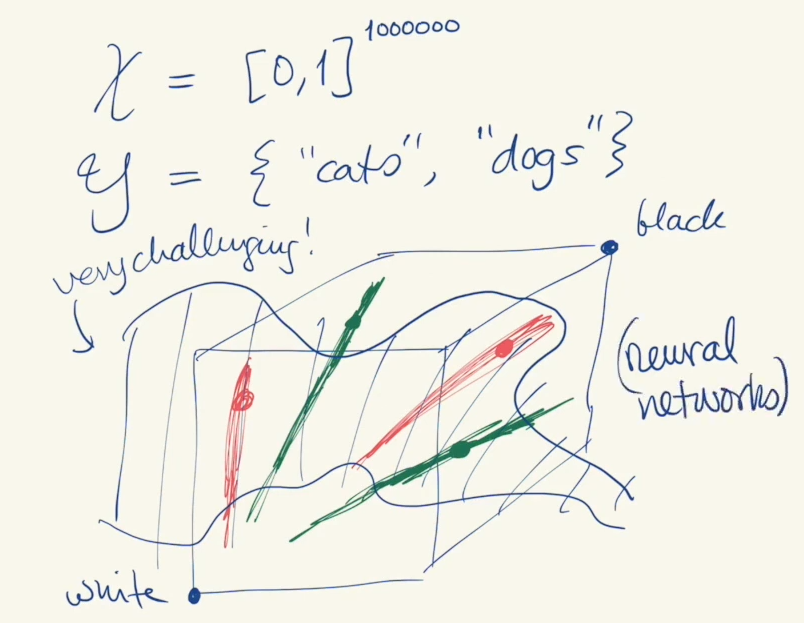 𝒳 = [0,1]^1000000
𝒴 = { "cats", "dogs" }
very challenging!
black
(neural
networks)
white